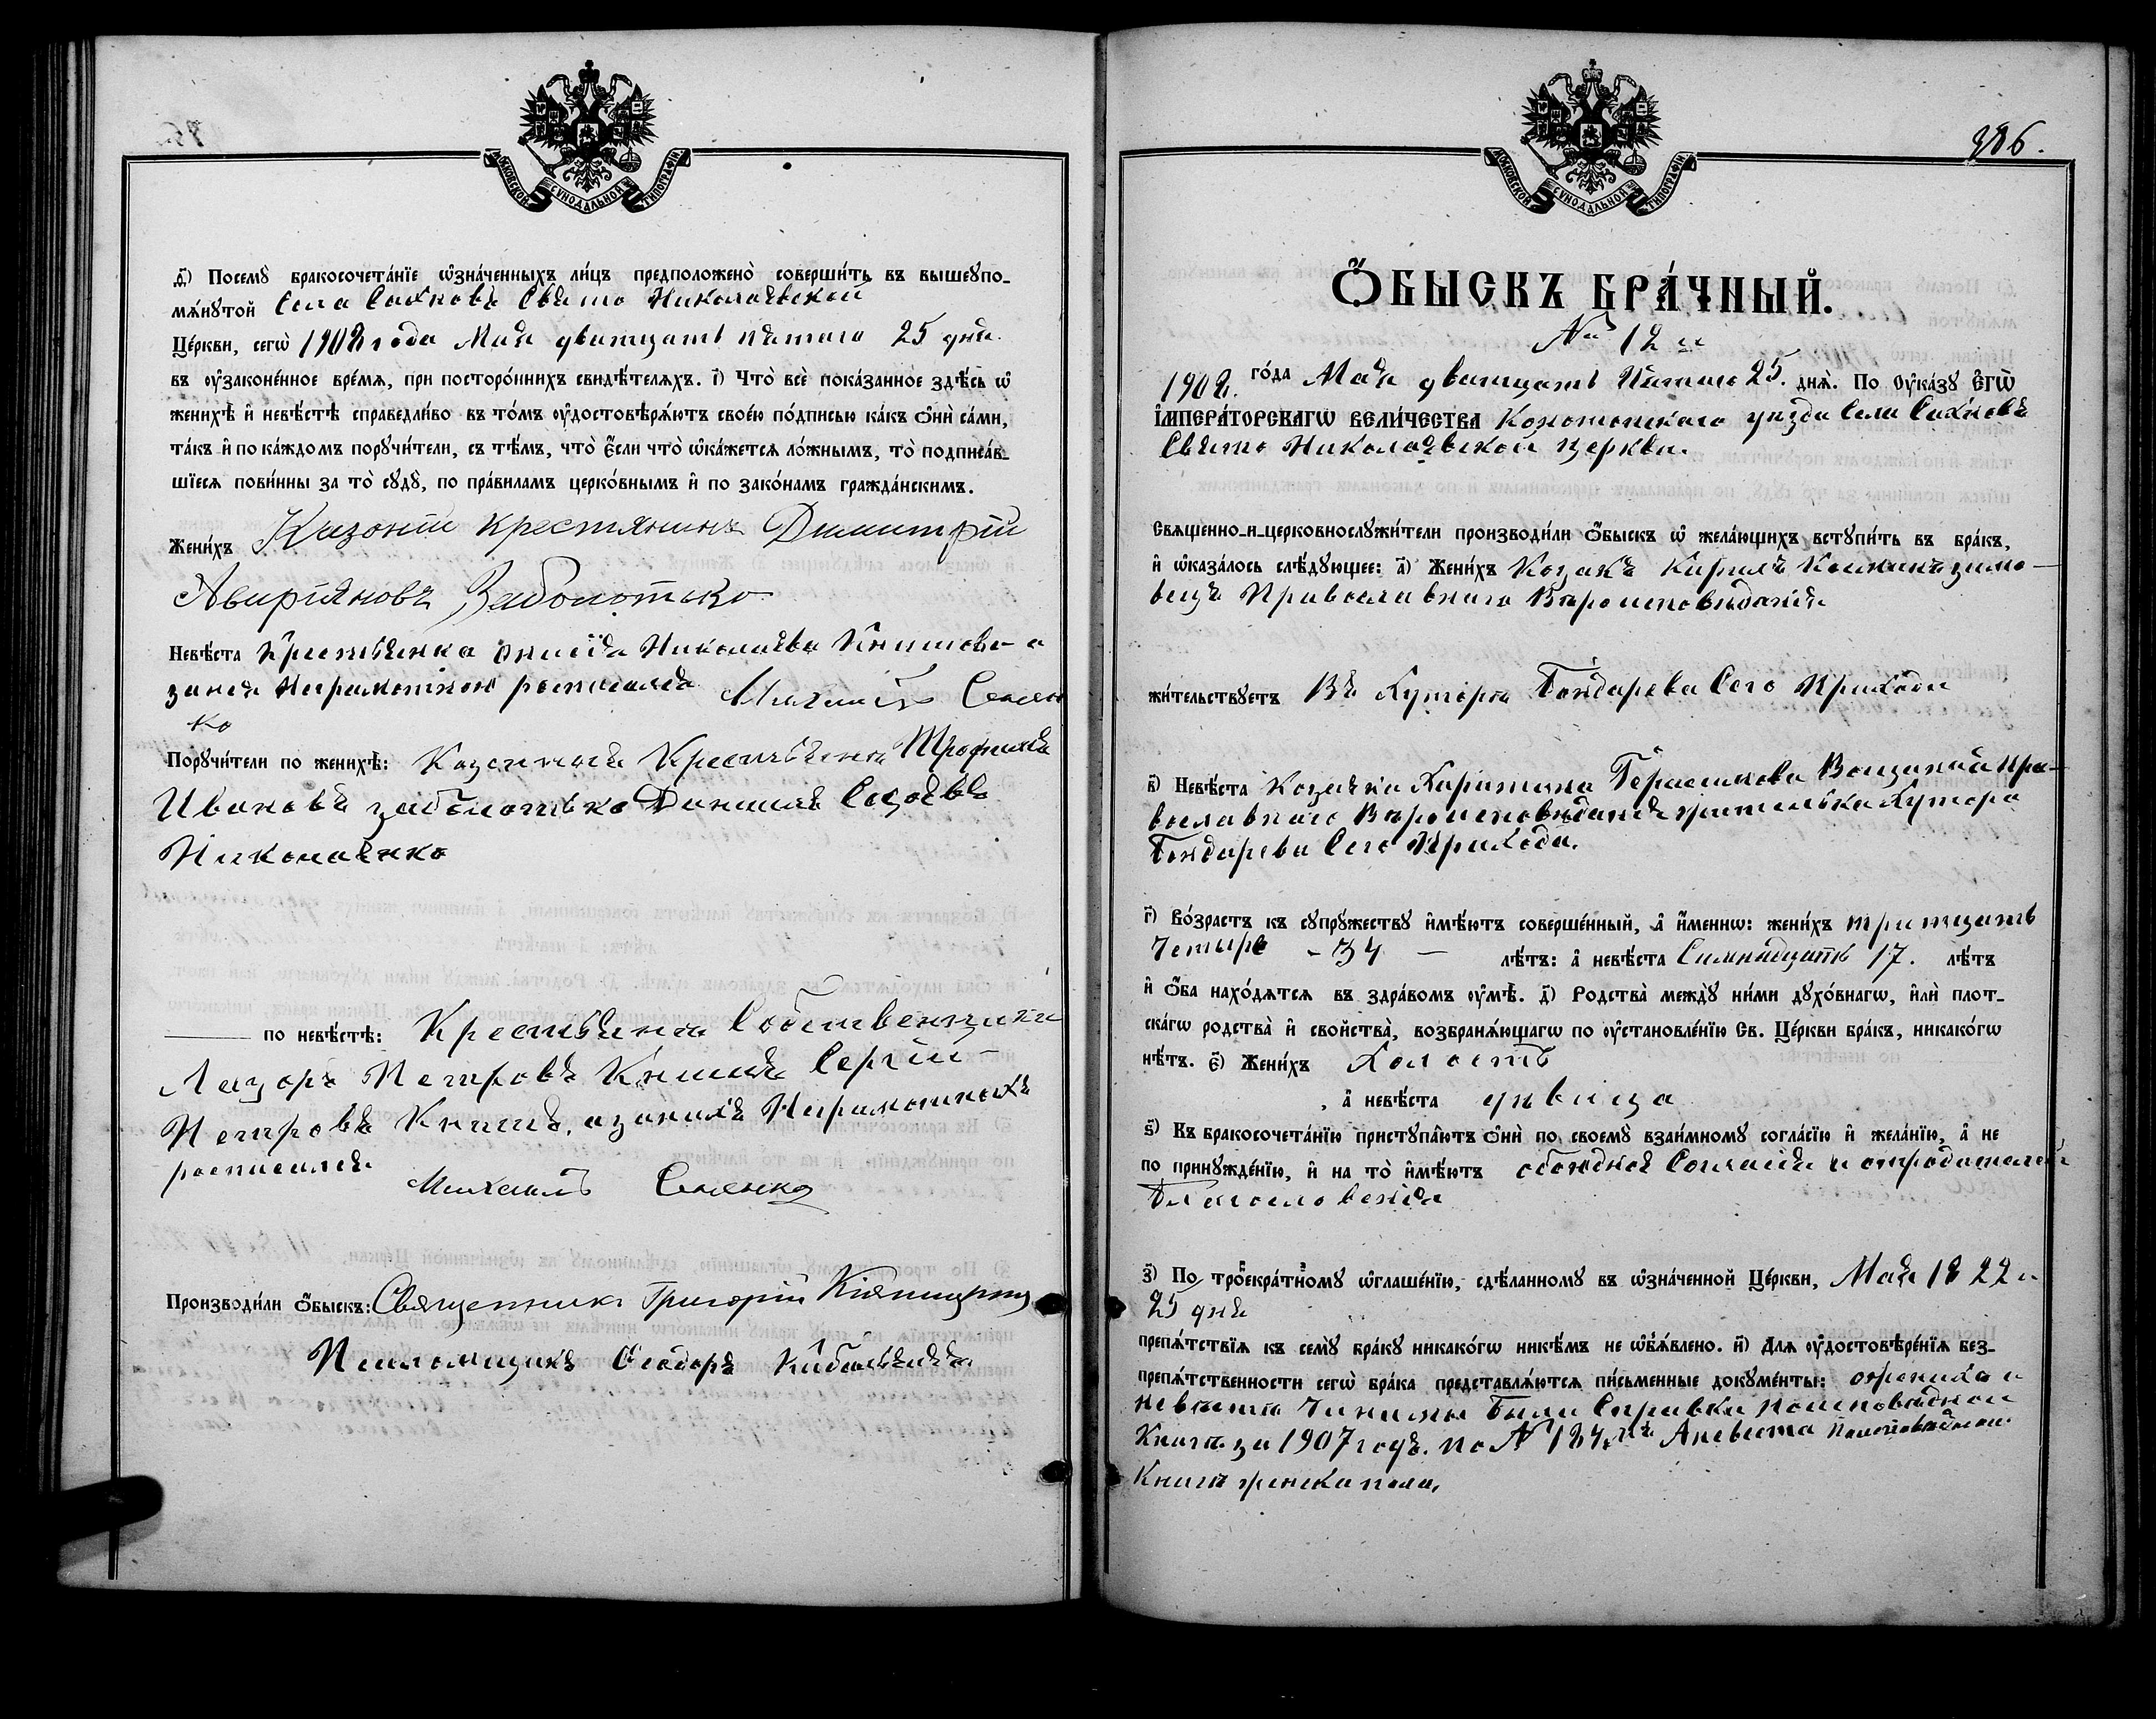 МОСКОВСКОЙ СѴНОДАЛЬНОЙ ТИПОГРАФІИ
д҃) Посемꙋ̀ бракосочета́нїе ѡ҆зна́ченныхъ ли́цъ предположено̀ соверши́ть въ вышеꙋпо-
мѧ́нꙋтой Села Сахновъ Свято Николаевской
Це́ркви, сегѡ̀ 1908 года Мая дватцать пятого 25 дня.
въ ᲂу҆законе́нное вре́мѧ, при посторо́ннихъ свидѣ́телѧхъ. і҃) Что̀ всѐ пока́занное здѣ́сь ѡ҆
женихѣ̀ и҆ невѣ́стѣ справедли́во въ то́мъ ᲂу҆достовѣрѧ́ютъ свое́ю по́дписью ка́къ ѻ҆нѝ са́ми,
та́къ и҆ по ка́ждомъ порꙋчи́тели, съ тѣ́мъ, что̀ є҆́сли что̀ ѡ҆ка́жетсѧ ло́жнымъ, то̀ подписа́в-
шїесѧ пови́нны за то̀ сꙋдꙋ̀, по пра́виламъ церко́внымъ и҆ по зако́намъ гражда́нскимъ.
Жени́хъ Казоній крестянинъ Димитрій
Авиріяновъ Заболотько
Невѣ́ста Крестьянка Николаева
занея Неграмотною росписался Михаилъ Сален
ко
Порꙋчи́тели по женихѣ̀: Казенныя Крестьяне Трофимъ
Ивановъ заболотько Даниилъ Сысоевъ
Николаенко
по невѣ́стѣ: Крестьяне Собственники
Лазорь Петровъ Книшъ Сергій
Петровъ Книшъ, азанихъ Неграмотныхъ
росписался
Михаилъ Саленко
Производи́ли ѻ҆́быскъ: Священникъ Григорій
Псаломщикъ Ѳеодоръ
МОСКОВСКОЙ СѴНОДАЛЬНОЙ ТИПОГРАФІИ
386.
Ѻ҆́БЫСКЪ БРА́ЧНЫЙ.
№ 12 й
1908. го́да Мая дватцать Пятого 25. днѧ̀. По Оу҆ка́зꙋ Є҆ГѠ̀
І҆МПЕРА́ТОРСКАГѠ ВЕЛИ́ЧЕСТВА Конотопскаго уезда Села Сахновъ
Свято Николаевской церкви.
Свѧщенно-и-церковнослꙋжи́тели производи́ли ѻ҆́быскъ ѡ҆ жела́ющихъ встꙋпи́ть въ бра́къ,
и҆ ѡ҆каза́лось слѣ́дꙋющее: а҃) Жени́хъ Козакъ Кирилъ
вецъ Православнаго Вѣроисповѣданія
жи́тельствꙋетъ Въ Хуторѣ Бондарева Сего Прихода
в҃) Невѣ́ста Козачка Харитина Герасимова Пра-
вославнаго Вѣроисповѣданія жителька Хутора
Бондарева Сего Прихода.
г҃) Во́зрастъ къ сꙋпрꙋ́жествꙋ и҆мѣ́ютъ соверше́нный, а҆ и҆́меннѡ: жени́хъ тритцать
Четыре - 34 - лѣ́тъ: а҆ невѣ́ста Симнадцать 17. лѣ́тъ
и҆ ѻ҆́ба нахо́дѧтсѧ въ здра́вомъ ᲂу҆мѣ̀. д҃) Родства̀ междꙋ̀ ни́ми дꙋхо́внагѡ, и҆лѝ плот-
ска́гѡ родства̀ и҆ свойства̀, возбранѧ́ющагѡ по ᲂу҆становле́нїю Св. Це́ркви бра́къ, никако́гѡ
нѣ́тъ. є҃) Жени́хъ Холостъ
а҆ невѣ́ста дѣвица
ѕ҃) Къ бракосочета́нїю пристꙋпа́ютъ ѻ҆нѝ по своемꙋ̀ взаи́мномꙋ согла́сїю и҆ жела́нїю, а҆ не
по принꙋжде́нїю, и҆ на то̀ и҆мѣ́ютъ обоюдное Согласія и отродителей
Благословенія
з҃) По трое́кратномꙋ ѡ҆глаше́нїю, сдѣ́ланномꙋ въ ѡ҆зна́ченной Це́ркви, Мая 18 22 и
25 дня
препѧ́тствїѧ къ семꙋ̀ бра́кꙋ никако́гѡ никѣ́мъ не ѡ҆б̾ѧ́влено. и҃) Длѧ ᲂу҆достовѣре́нїѧ без-
препѧ́тственности сегѡ̀ бра́ка представлѧ́ютсѧ пи́сьменные докꙋме́нты: ожениха и
невесты Чинимы Были Справки поисповедной
Книги за 1907 годъ. по № 184 Аневеста Поисповедной
Книги женска пола,